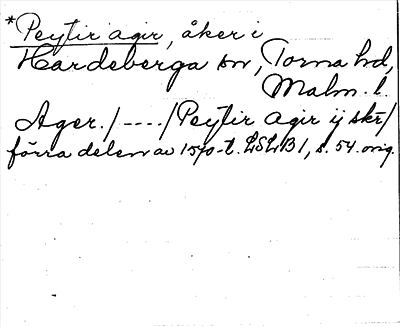 *Peytir agir, åker i
Hardeberga sn, Torna hd,
Malm. l.
Ager./----/Peytir agir ij skr/
förra delen av 1570-t. LSLB1, s. 54. orig.